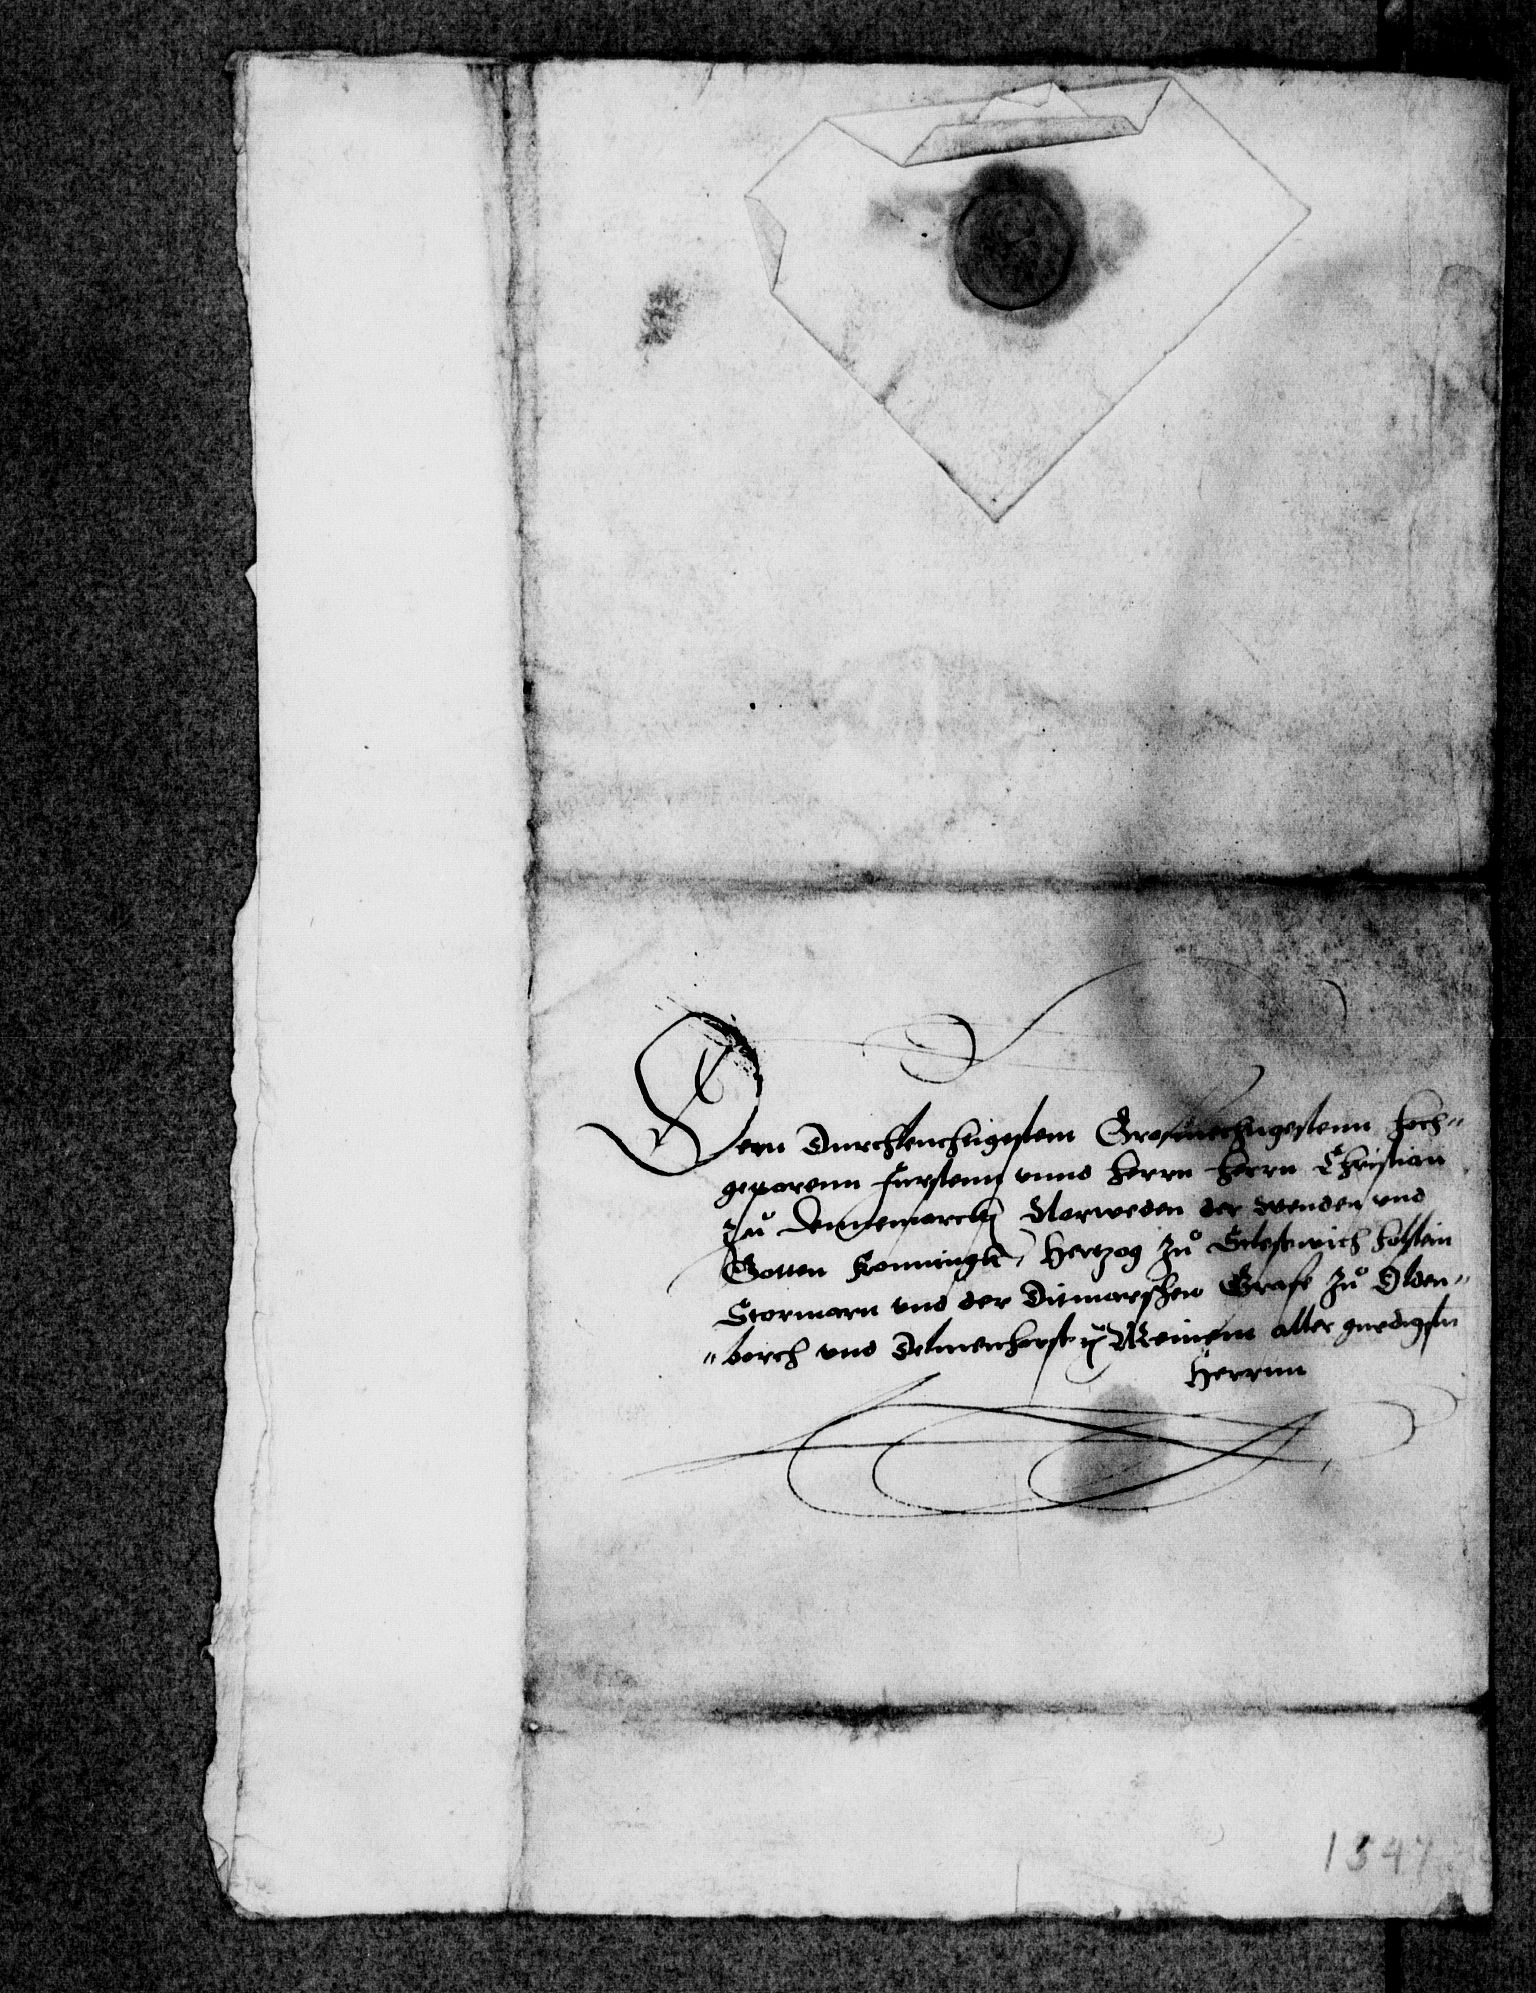 Dem Durchleuchtigestem Grosmechtigestenn Hoch-
geparenn Furstenn vnnd Herrn Herrn Christian
Zů Dennemarck Norweden der Wenden vnd
Gotten Konningk, Hertzog Zů Sclesewich Holstein
Stormarn vnd der Ditmarschen Graffe Zů Olden-
-borch vnd Delmenhorst Meinem aller gnedigstn
Herrnn
1547